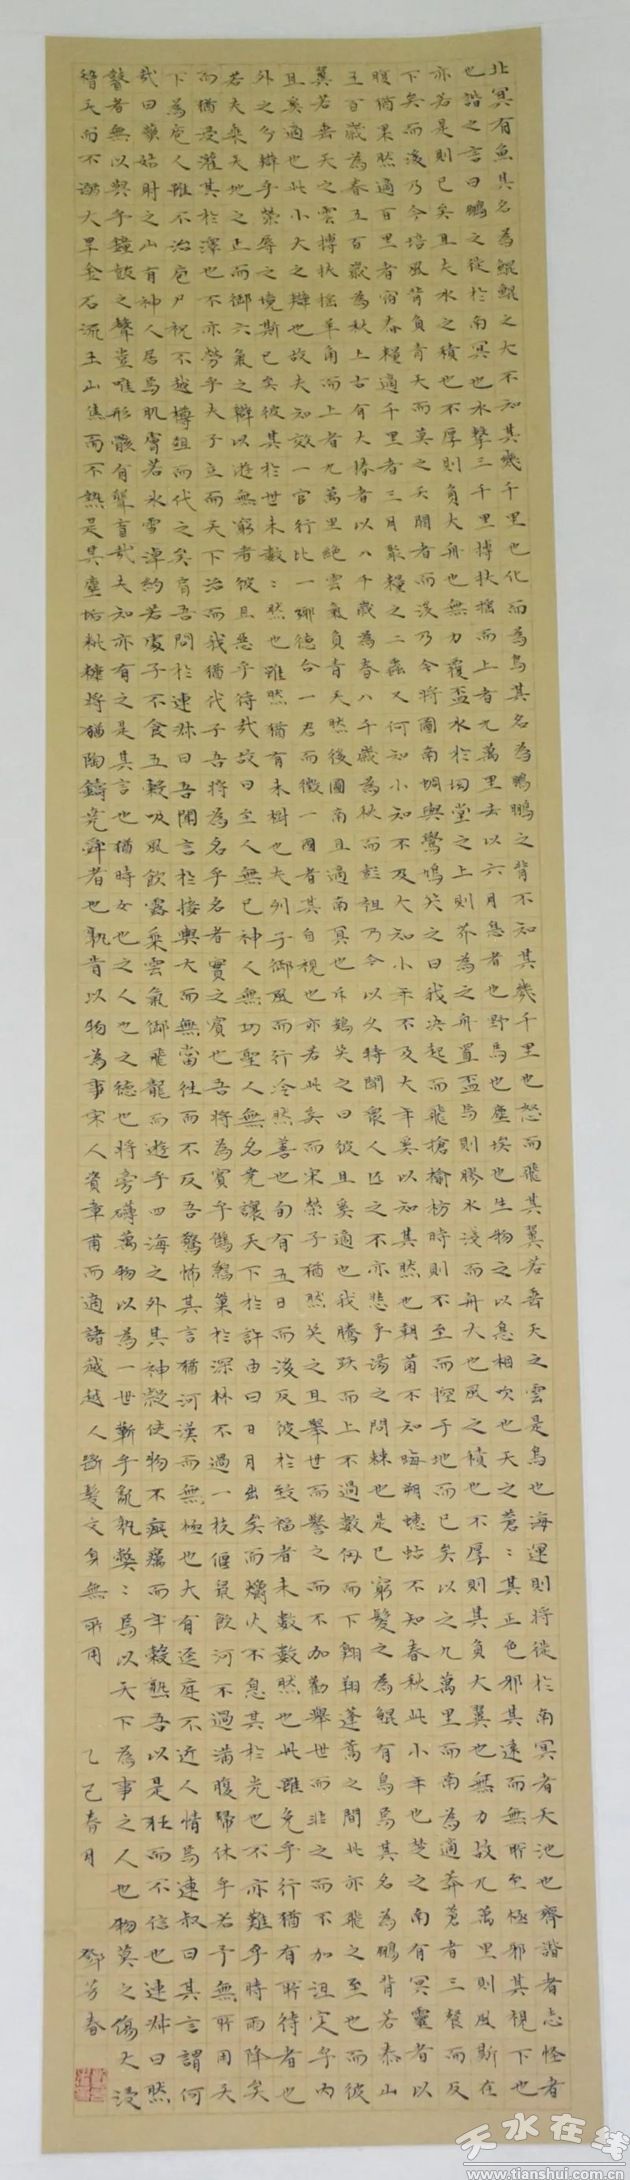 北冥有魚其名為鯤鯤之大不知其幾千里也化而為鳥其名為鵬鵬之背不知其幾千里也怒而飛其翼若垂天之雲是鳥也海運則將徙於南冥者天池也齊諧者志怪者
也諧之言曰鵬之徙於南冥也水擊三千里摶扶搖而上者九萬里去以六月息者也野馬也塵埃也生物之以息相吹也天之蒼々其正色邪其遠而無所至極邪其視下也
亦若是則已矣且夫水之積也不厚則負大舟也無力覆盃水於坳堂之上則芥為之舟置盃焉則膠水淺而舟大也風之積也不厚則其負大翼也無力故九萬里則風斯在
下矣而後乃今培風背負青天而莫之夭閼者而後乃今將圖南蜩與鷽鳩笑之曰我決起而飛搶榆枋時則不至而控于地而已矣以之九萬里而南為適莽蒼者三餐而反
腹猶果然適百里者宿舂糧適千里者三月聚糧之二蟲又何知小知不及大知小年不及大年奚以知其然也朝菌不知晦朔蟪蛄不知春秋此小年也之南有冥靈者以
五百歲為春五百歲為秋上古有大椿者以八千歲為春八千歲為秋而彭祖乃今以久特聞眾人匹之不亦悲乎湯之問棘也是已窮髮之為鯤有鳥焉其名為鵬背若泰山
翼若垂天之雲摶扶搖羊角而上者九萬里絕雲氣負青天然後圖南且適南冥也斥鷃笑之曰彼且奚適也我騰躍而上不過數仞而下翱翔蓬蒿之間此亦飛之至也而彼
且奚適也此小大之辯也故夫知效一官行比一鄉德合一君而徵一國者其自視也亦若此矣而宋榮子猶然笑之且舉世而譽之而不加勸舉世而非之而不加沮定乎內
外之分辯乎榮辱之境斯已矣彼其於世未數々然也雖然猶有未樹也夫列子御風而行泠然善也旬有五日而後反彼於致福者未數數然也此雖免乎行猶有所待者也
若夫乘天地之正而御六氣之辯以遊無窮者彼且惡乎待哉故曰至人無已神人無功聖人無名堯讓天下於許由曰日月出矣而爝火不息其於光也不亦難乎時雨降矣
而猶浸灌其於澤也不亦勞乎夫子立而天下治而我猶代子吾將為名乎名者實之賓也吾將為賓乎鷦鷯巢於深林不過一枝偃鼠飲河不過滿腹歸休乎若予無所用天
下為庖人雖不治庖尸祝不越樽俎而代之矣肩吾問於連叔曰吾聞言於接輿大而無當往而不反吾驚怖其言猶河漢而無極也大有逕庭不近人情焉連叔曰其言謂何
哉曰藐姑射之山有神人居焉肌膚若冰雪淖約若處子不食五穀吸風飲露乘雲氣御飛龍而遊乎四海之外其神凝使物不疵癘而年穀熟吾以是狂而不信也連叔曰然
瞽者無以與乎鐘鼓之聲豈唯形骸有聾盲哉夫知亦有之是其言也猶時女也之人也之德也將旁礡萬物以為一世蘄乎亂孰弊々焉以天下為事之人也物莫之傷大浸
稽天而不溺大旱金石流土山焦而不熱是其塵垢秕糠將猶陶鑄堯舜者也孰肯以物為事宋人資章甫而適諸越越人斷髮文身無所用
乙己春月
鄧芳春
天水在线
www.tianshui.com.cn